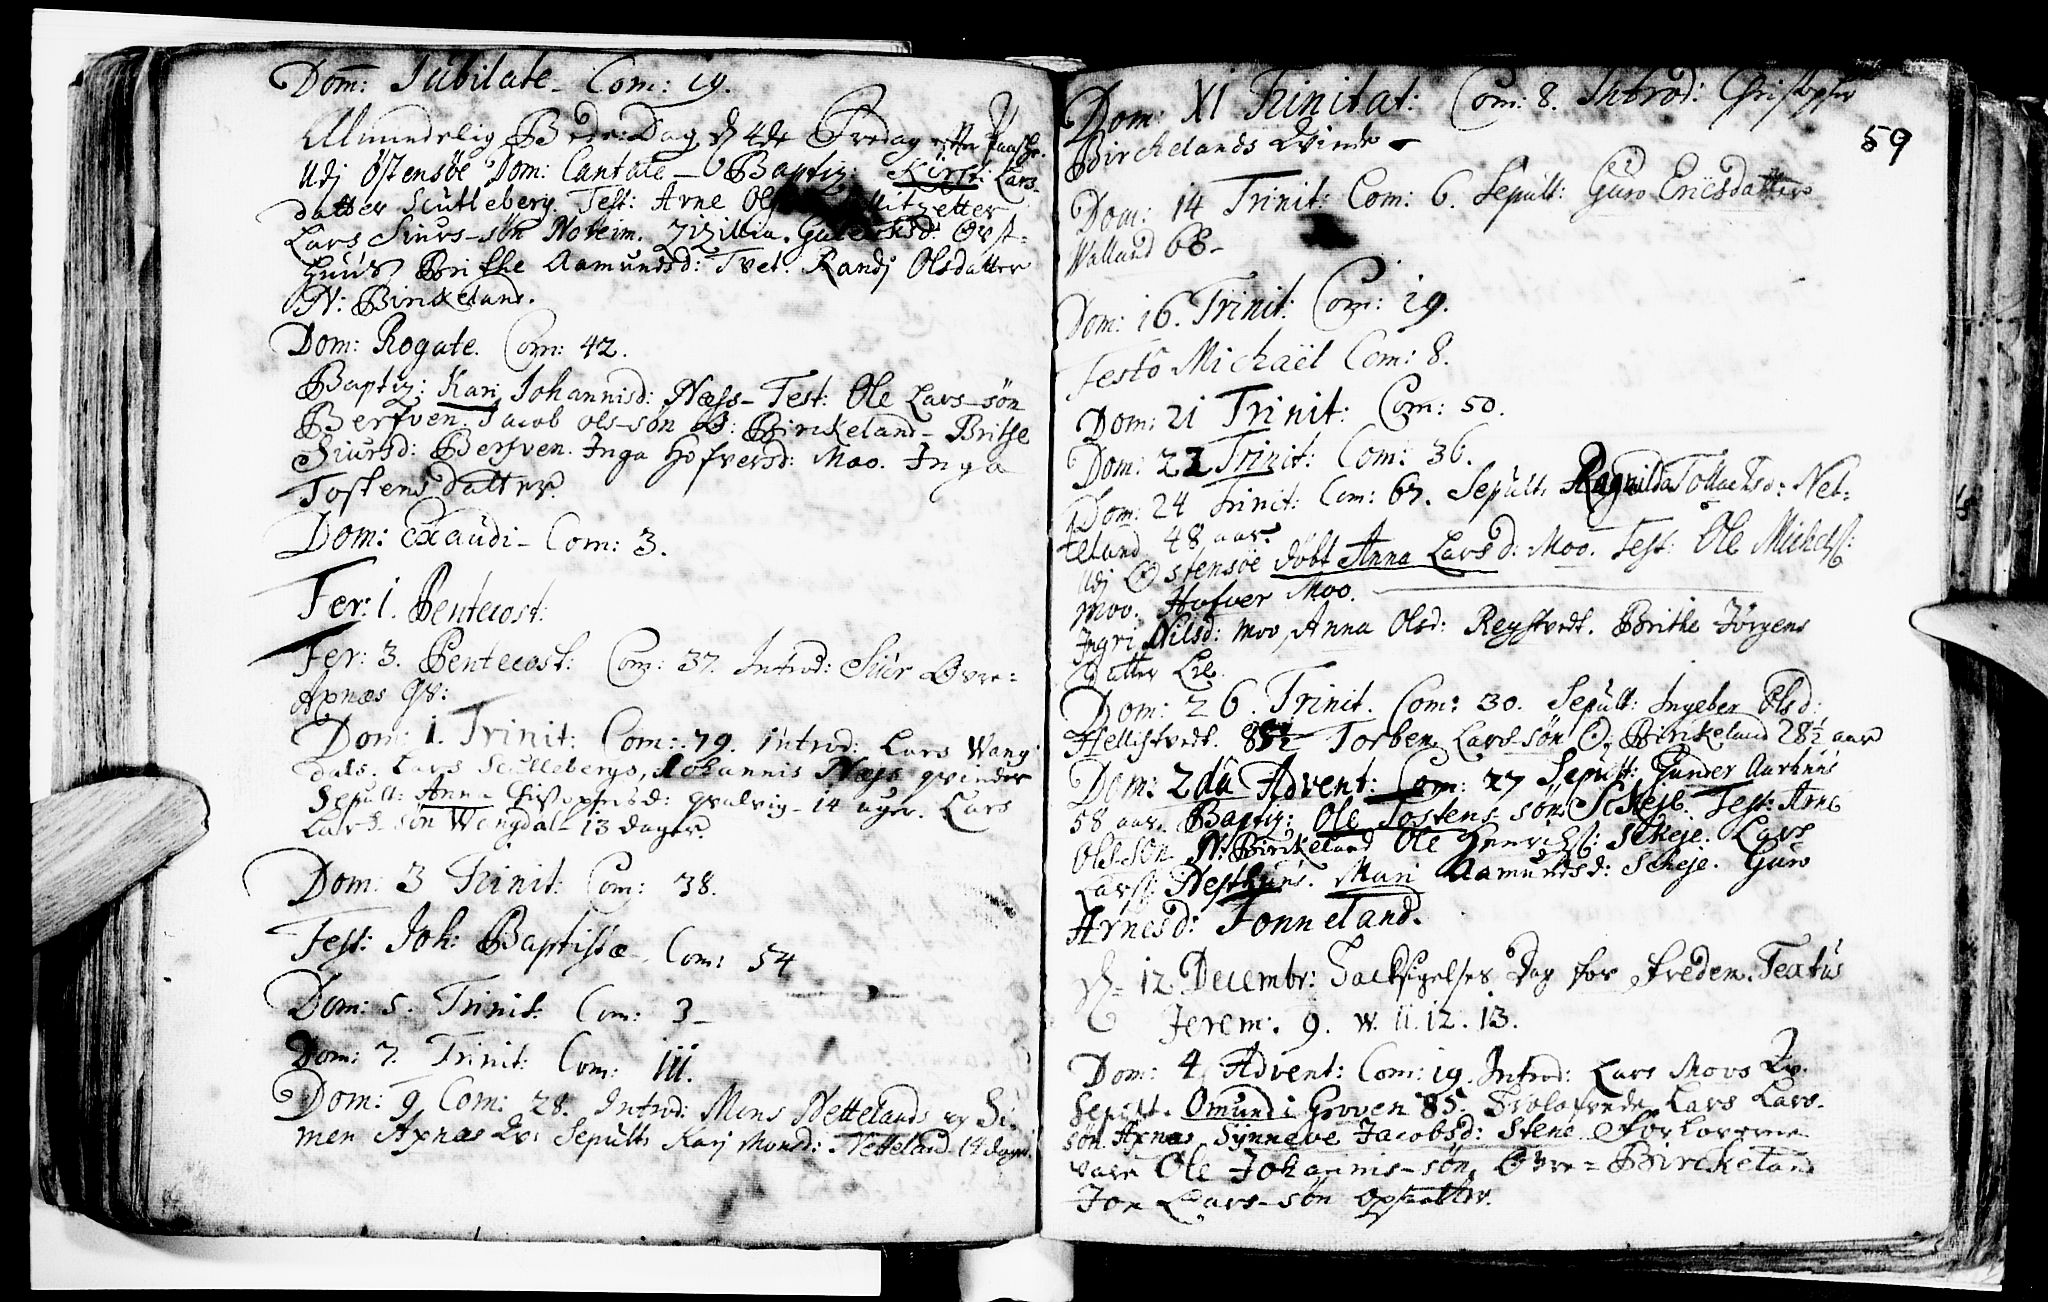 Dom: Jubilate – Com: 19.
Almindelig Bede-Dag d 4de Fredag efter Paaske.
Udj Østensøe Dom: Cantate – Baptiz: Kirsti Lars-
datter Scutleberg. Test: Arne Ols
Lars Siurs-søn Noreim. Zizillia
Huus Brithe Aamundsd: Tvet. Randj Olsdatter
N: Birckeland.
Dom: Rogate. Com: 42.
Baptiz: Kari Johannisd: Næss – Test: Ole Lars-søn
Berfven. Jacob Ols-søn Ø: Birckeland – Brithe
Siursd: Berfven. Inga Hofversd: Moo. Inga
Tostens datter.
Dom: Exaudi – Com: 3.
Fer: 1. Pentecost:
Fer: 3. Pentecost: Com: 37. Introd: Siur Øvre=
Axnæs qv:
Dom: 1. Trinit: Com: 79. Introd: Lars Wang
dals. Lars Scutlebergs, Johannis Næss qvinder
Sepult: Anna Christophersd: qvalvig – 14 uger. Lars
Lars-søn Wangdal – 13 dager.
Dom: 3 Trinit: Com: 38.
Fest: Joh: Baptistæ – Com: 54
Dom: 5. Trinit: Com: 3 –
Dom: 7. Trinit: Com: 111.
Dom: 9 Com: 28. Introd: Mons Nettelands og Si-
men Axnæs Qv: Sepult: Karj Monsd: Netteland 14 dager
Dom: XI Trinitat: Com: 8. Introd: Christopher
59
Birckelands Qvinde –
Dom: 14 Trinit: Com: 6. Sepult: Guro Ericsdatter
Walland 68 –
Dom: 16. Trinit: Com: 19.
Festo Michaël Com: 8.
Dom: 21 Trinit: Com: 50.
Dom: 22 Trinit: Com: 36.
Dom: 24 Trinit: Com: 67. Sepult: Ragnilda Tollachsd: Net=
teland 48 aar.
Udj Østensøe døbt Anna Larsd: Moo. Test: Ole Michelss:
Moo. Hofver Moo.
Ingri Nilsd: Moo, Anna Olsd: Reystvedt. Brithe Jørgens
datter Lie.
Dom: 26. Trinit. Com: 30. Sepult: Ingebor Olsd:
Hellistvedt. Torben Lars-søn Ø: Birckeland 28½ aar
Dom: 2da Advent: Com: 27 Sepult: Gunder Aarhuus
58 aar. Baptiz: Ole Tostens-søn Scheje. Test: Arne
Ols-søn N: Birckeland Ole Henrichss: Scheje. Lars
Larss: Nesthuus. Mari Aamundsd: Scheje. Guro
Arnesd: Tonneland.
d: 12 Decembr: Tacksigelses Dag for Freden. Textus
Jerem: 9. w. 11. 12. 13.
Dom: 4 Advent: Com: 19. Introd: Lars Moos Qv.
Sepult. Omund i Groven 85. Trolofvede Lars Lars-
søn Axnæs, Synneve Jacobsd: Stene. Forloverne
vare Ole Johannis-søn, Øvre=Birckeland
Jon Lars-søn